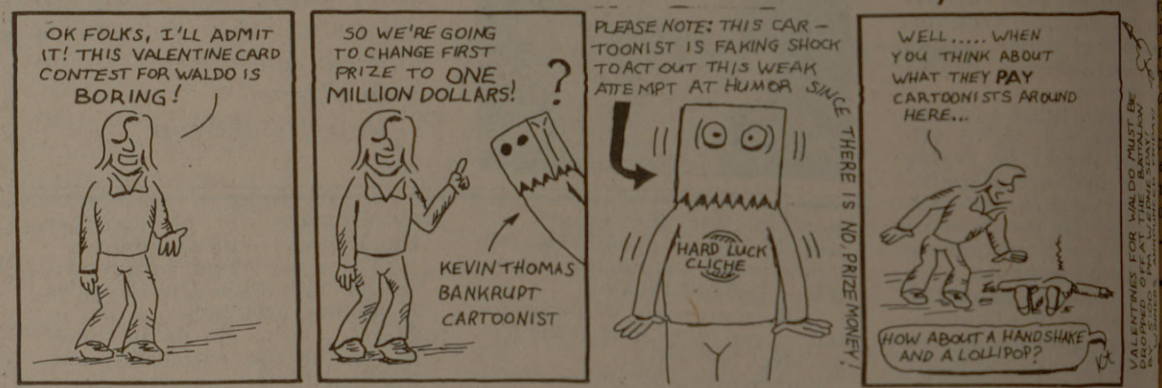 OK FOLKS, I'LL ADMIT
IT! THIS VALENTINE CARD
CONTEST FOR WALDO IS
BORING!
SO WE'RE GOING
TO CHANGE FIRST
PRIZE TO ONE
MILLION DOLLARS!
?
KEVIN THOMAS
BANKRUPT
CARTOONIST
PLEASE NOTE: THIS CAR-
TOONIST IS FAKING SHOCK
TO ACT OUT THIS WEAK
ATTEMPT AT HUMOR SINCE THERE IS NO PRIZE MONEY!
HARD LUCK
CLICHE
WELL..... WHEN
YOU THINK ABOUT
WHAT THEY PAY
CARTOONISTS AROUND
HERE...
HOW ABOUT A HANDSHAKE
AND A LOLLIPOP?
VALENTINES FOR WALDO MUST BE
DROPPED OFF AT THE BATTALION